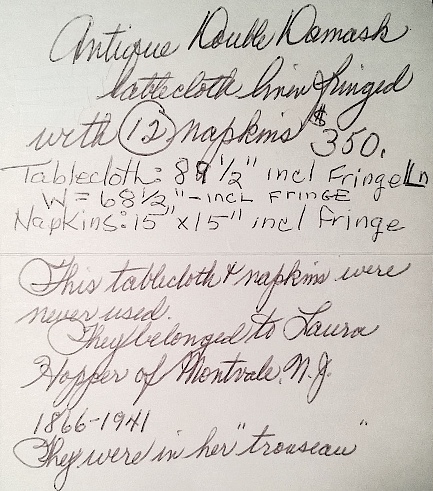 Antique Double Damask
tablecloth linen fringed
with 12 napkins $350.
Tablecloth: 89 1/2" incl Fringe Ln
W = 68 1/2" - INCL FRINGE
Napkins: 15" x 15" incl fringe
This tablecloth & napkins were
never used.
They belonged to Laura
Hopper of Montvale, N.J.
1866-1941
They were in her "trouseau"